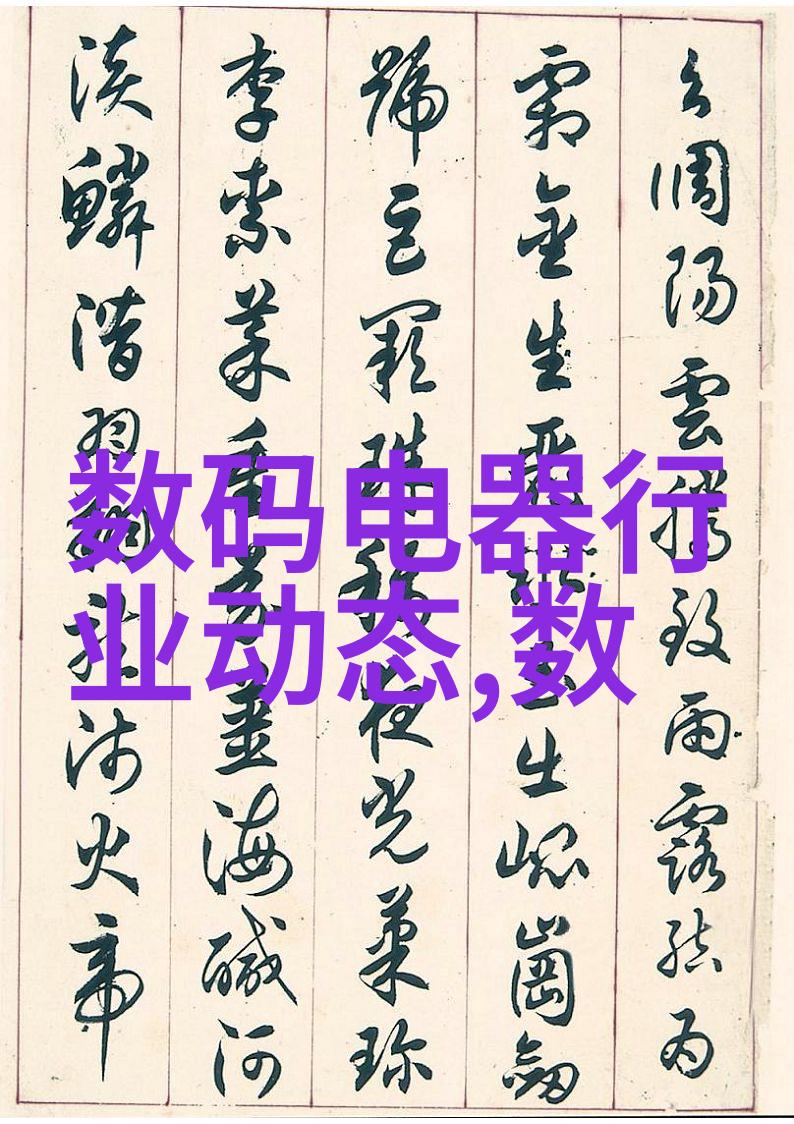 呂調陽雲騰致雨露結為
霜金生麗水玉出崑崗劍
號巨闕珠稱夜光菓珍
李柰菜重芥薑海鹹河
淡鱗潛羽翔龍師火帝
数码电器行
业动态,数